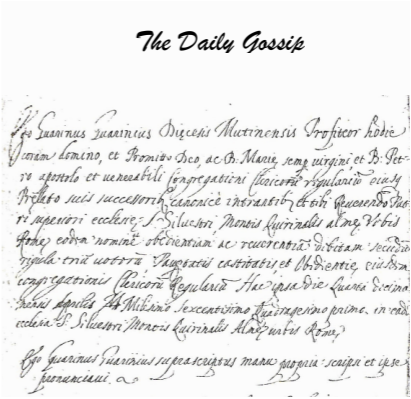 The Daily Gossip
Ego Guarinus Guarinius Diocesis Mutinensis Profiteor hodie
coram domino, et Promitto Deo, ac B. Mariae semp. virgini et B. Pet-
ro apostolo et venerabili congregationi Clericorū regulariū eiusq
Prelato suis successorib canonice intrantib et tibi Reverendo Pat-
ri superiori ecclesie S. Silvestri Montis Quirinalis alme Urbis
Rome, eodem nomine obedientiam ac reverentiā debitam secundū
regula triū votorū Paupertatis castitatis et Obidientie, eiusdem
congregationis Clericorū Regulariū Hac ipsa die Quarta decima
mensis Aprilis Millesimo sexcentesimo Quadragesimo primo in eadē
ecclesia S. Silvestri Montis Quirinalis Alme urbis Rome,
Ego Guarinus Guarinius suprascriptus manu propria scripsi et ipse
pronunciavi.